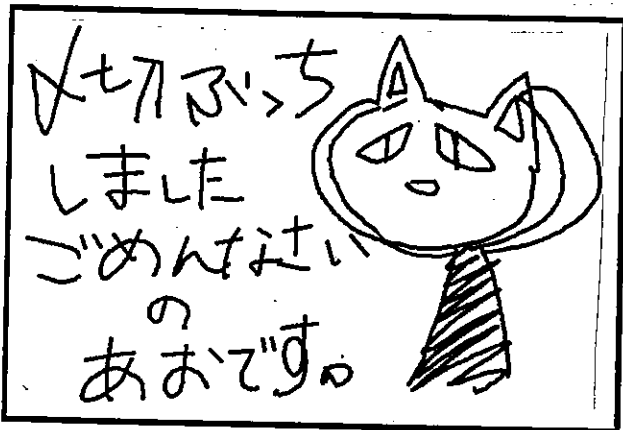 〆切ぶっち
しました
ごめんなさい
の
あおです。